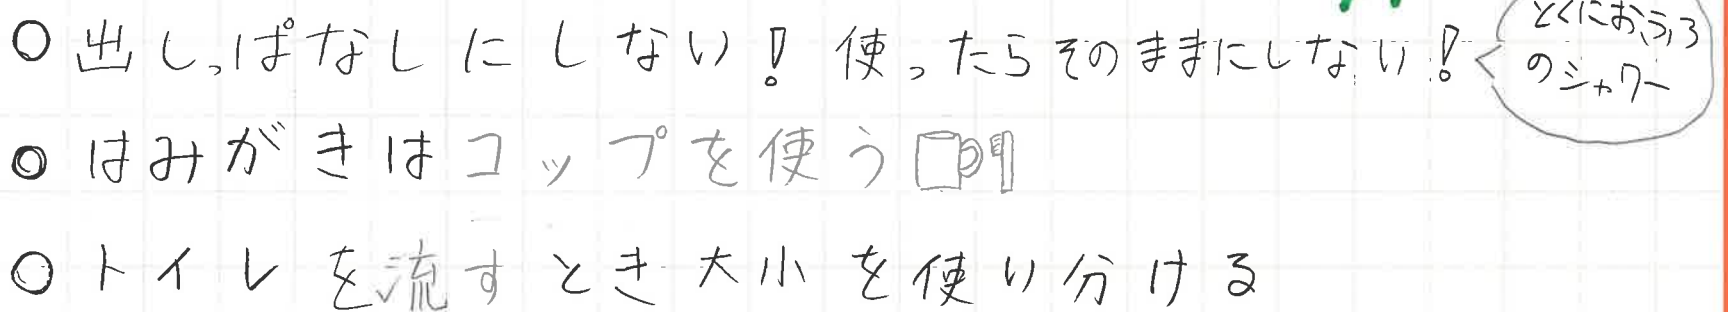 ○出しっぱなしにしない!使ったらそのままにしない!
とくにおふろ
のシャワー
○はみがきはコップを使う
○トイレを流すとき大小を使い分ける